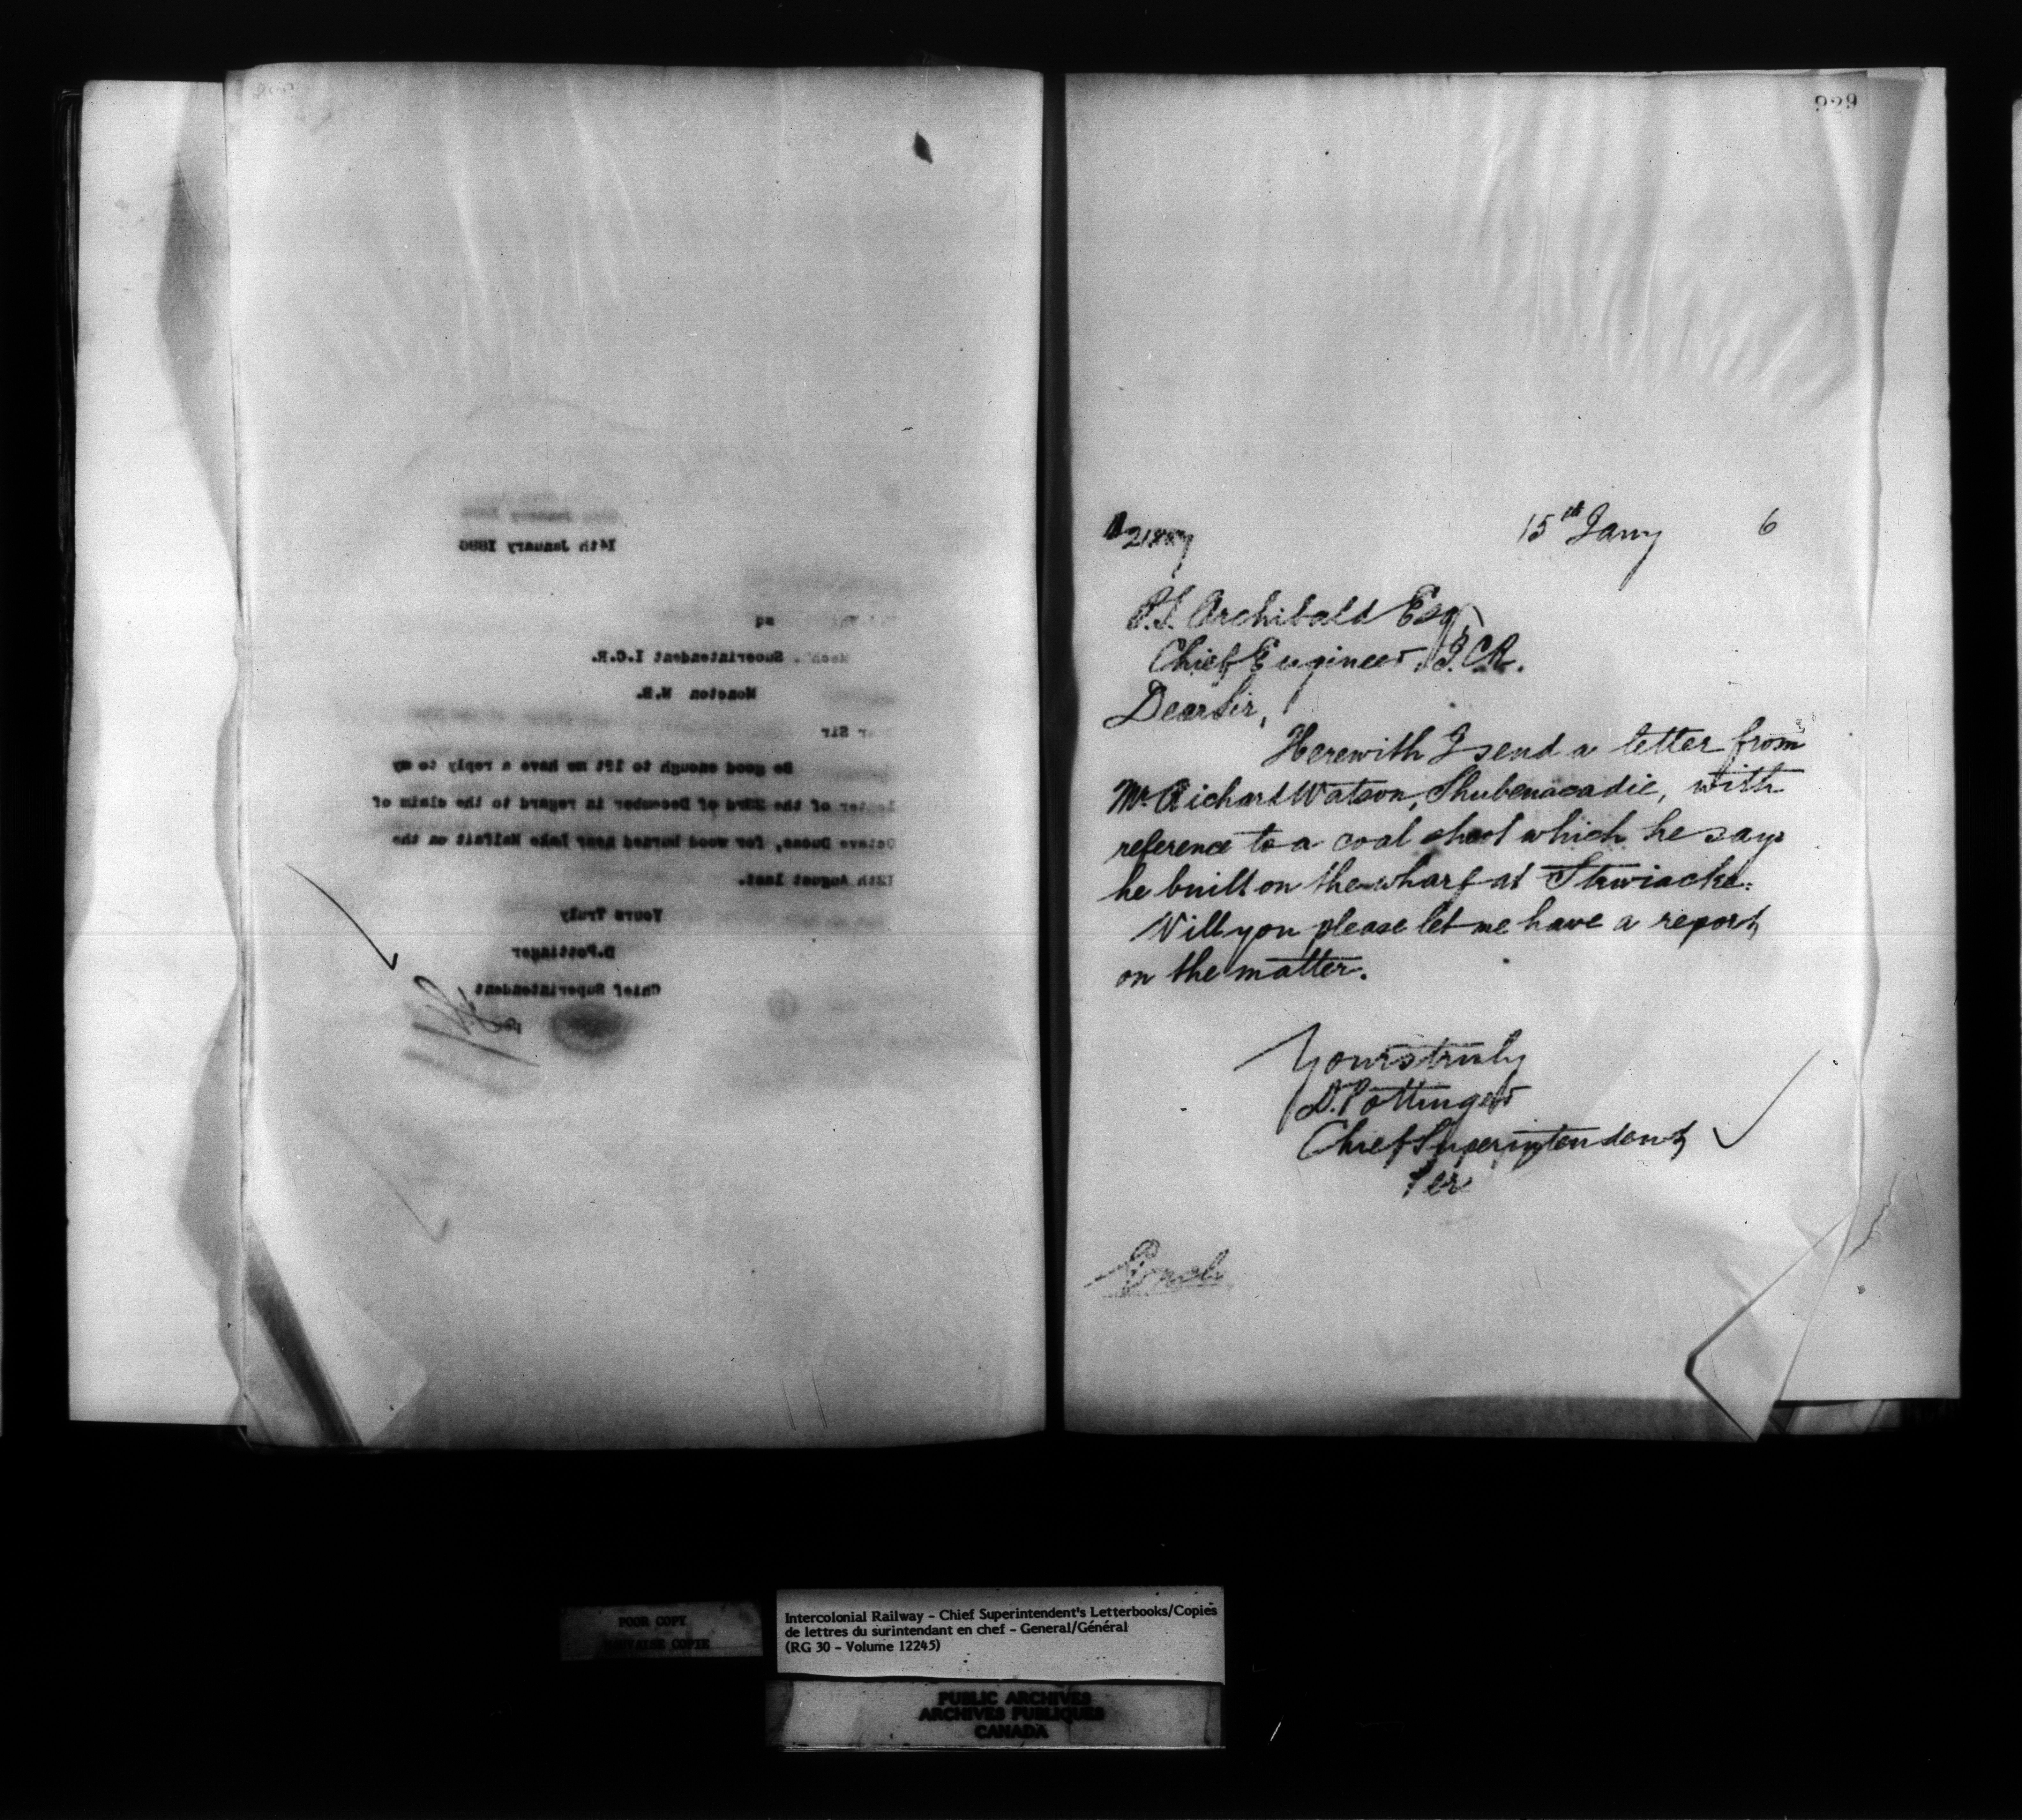 14th January 1886
Superintendent I.C.R.
Moncton N.B.
Sir
Be good enough to let me have a reply to my
letter of the 23rd of December in regard to the claim of
Octave Dumas, for wood burned near Lake Malfait on the
12th August last.
Yours Truly
D.Pottinger
Chief Superintendent
per
929
15th Jany 6
P.S. Archibald Esq,
Chief Engineer, I.C.R.
Dear Sir,
Herewith I send a letter from
Mr Richard Watson, Shubenacadie, with
reference to a coal shoot which he says
he built on the wharf at Stewiacke.
Will you please let me have a report
on the matter.
Yours truly
D. Pottinger
Chief Superintendent
Per
POOR COPY
MAUVAISE COPIE
Intercolonial Railway - Chief Superintendent's Letterbooks/Copies
de lettres du surintendant en chef - General/Général
(RG 30 - Volume 12245)
PUBLIC ARCHIVES
ARCHIVES PUBLIQUES
CANADA